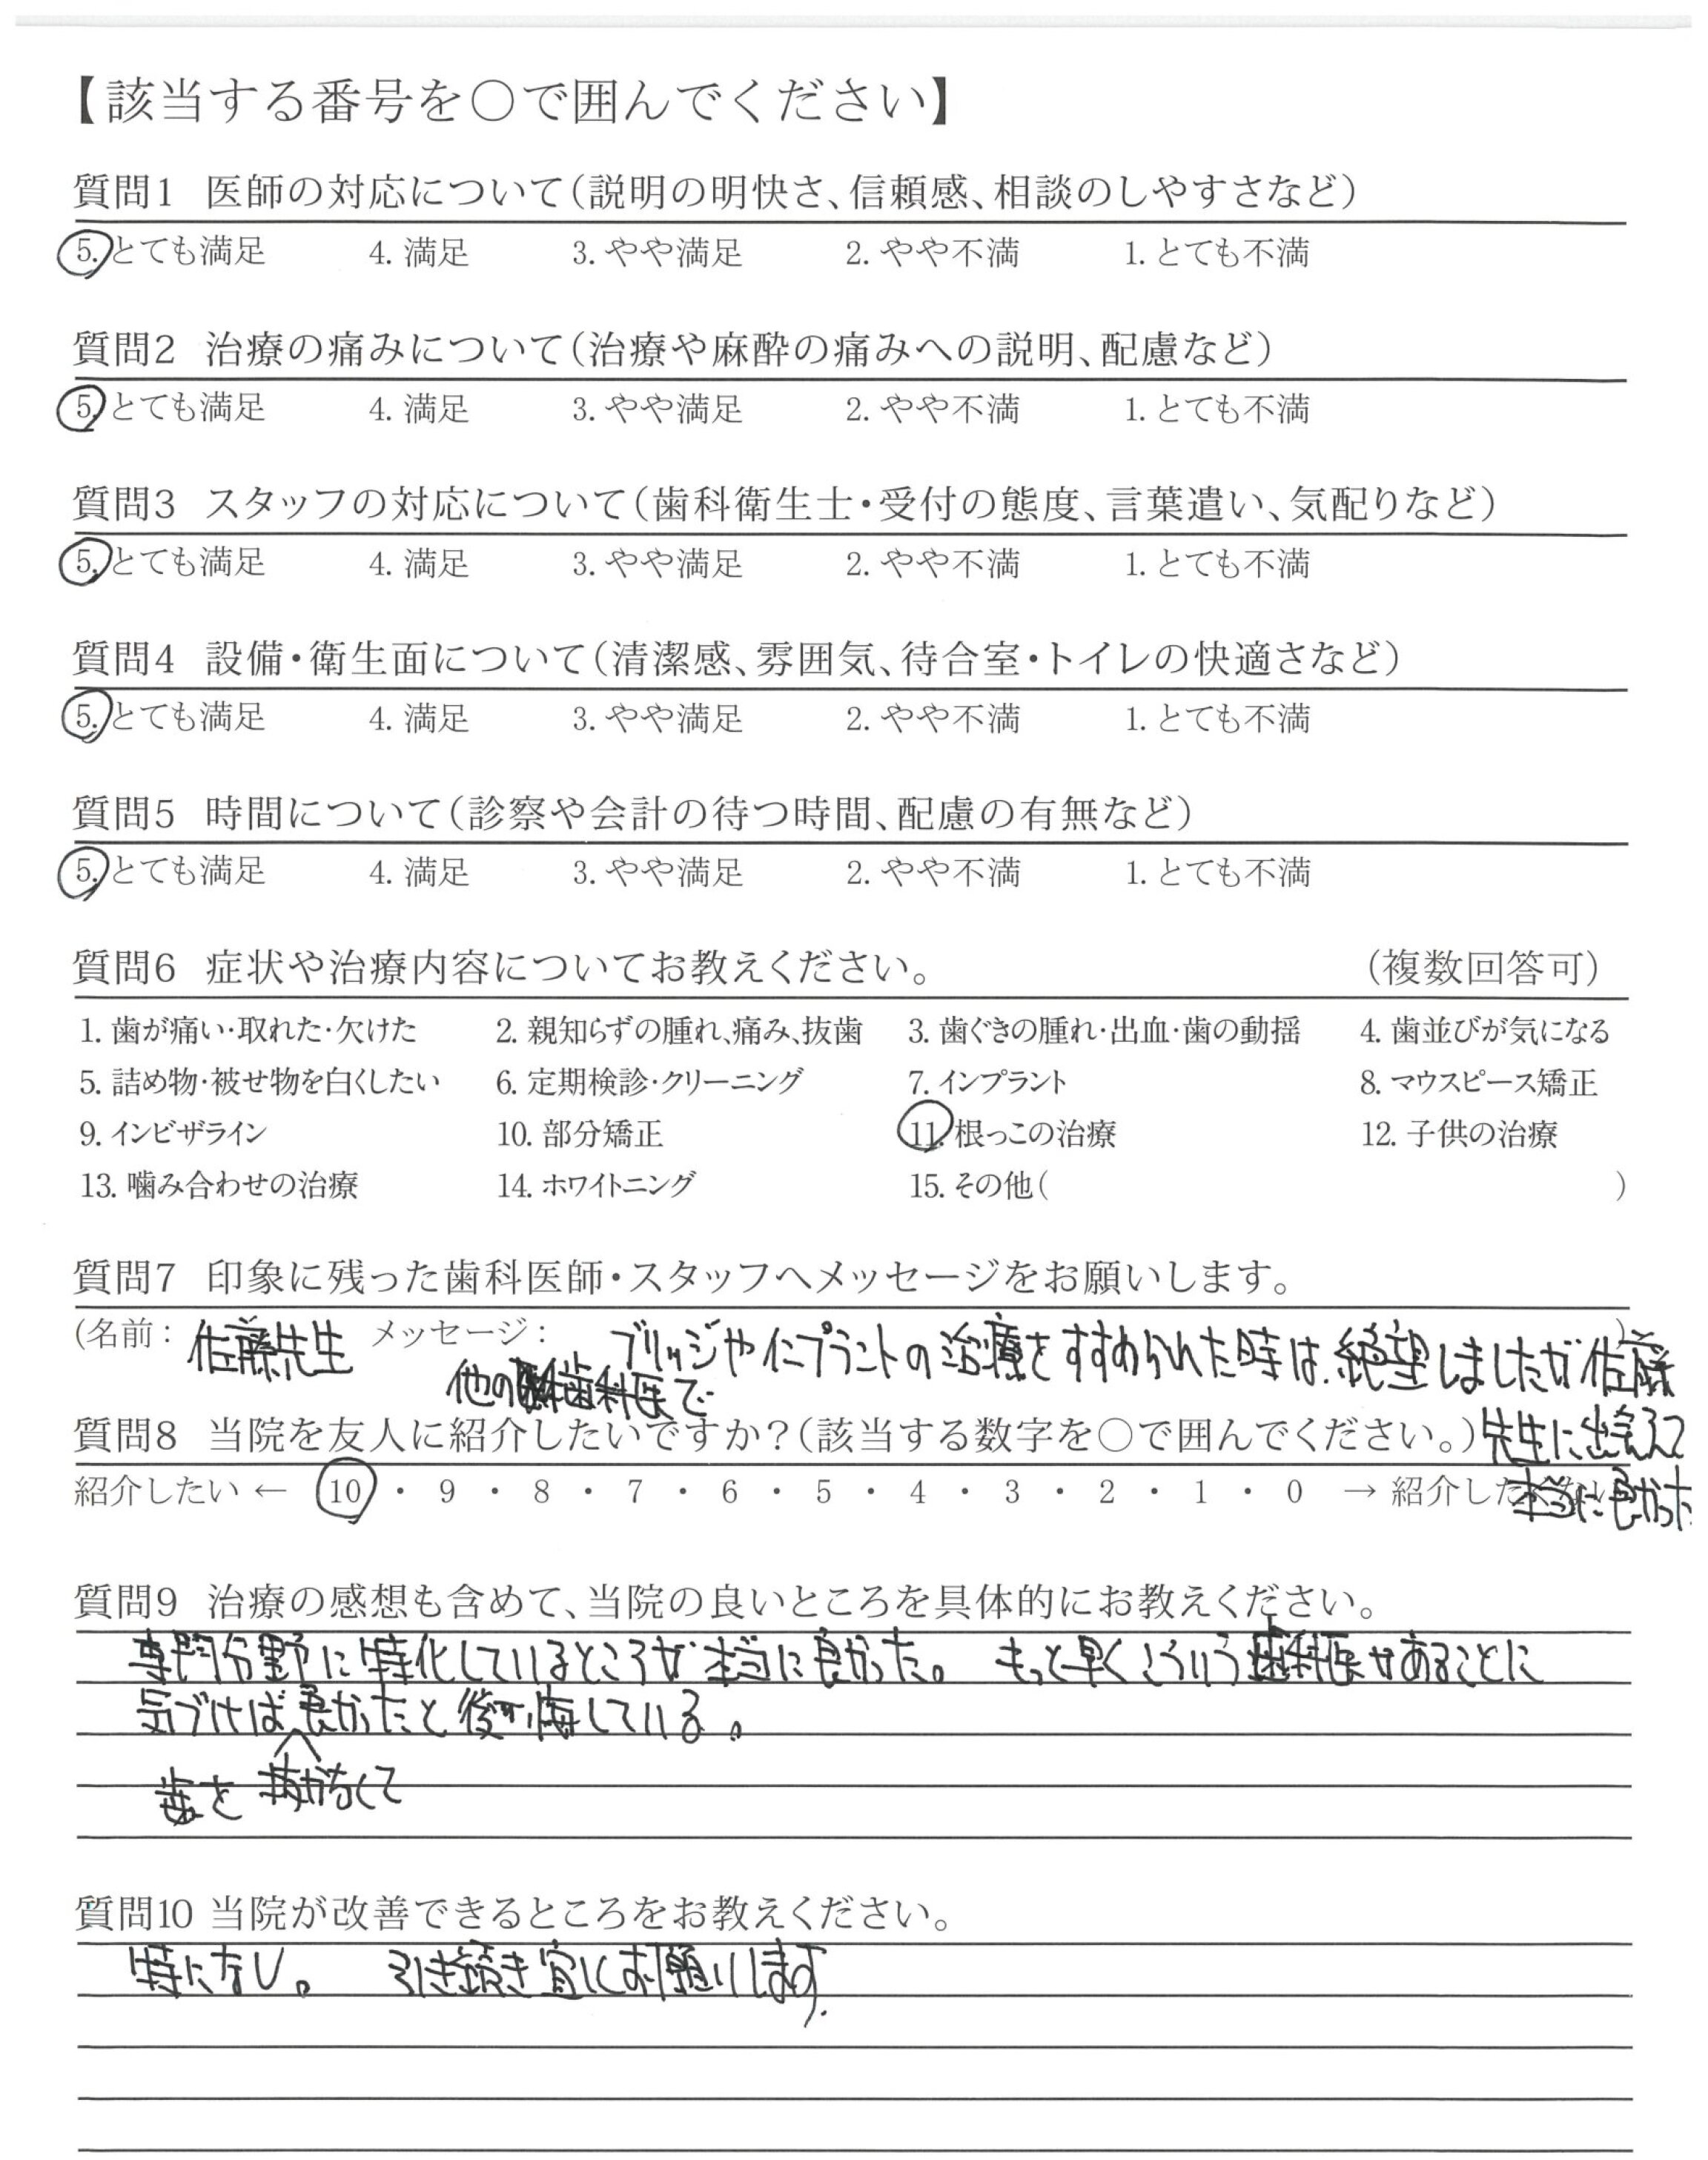 【該当する番号を○で囲んでください】
質問1 医師の対応について(説明の明快さ、信頼感、相談のしやすさなど)
5. とても満足 4. 満足 3. やや満足 2. やや不満 1. とても不満
質問2 治療の痛みについて(治療や麻酔の痛みへの説明、配慮など)
5. とても満足 4. 満足 3. やや満足 2. やや不満 1. とても不満
質問3 スタッフの対応について(歯科衛生士・受付の態度、言葉遣い、気配りなど)
5. とても満足 4. 満足 3. やや満足 2. やや不満 1. とても不満
質問4 設備・衛生面について(清潔感、雰囲気、待合室・トイレの快適さなど)
5. とても満足 4. 満足 3. やや満足 2. やや不満 1. とても不満
質問5 時間について(診察や会計の待つ時間、配慮の有無など)
5. とても満足 4. 満足 3. やや満足 2. やや不満 1. とても不満
質問6 症状や治療内容についてお教えください。 (複数回答可)
1. 歯が痛い・取れた・欠けた 2. 親知らずの腫れ、痛み、抜歯 3. 歯ぐきの腫れ・出血・歯の動揺 4. 歯並びが気になる
5. 詰め物・被せ物を白くしたい 6. 定期検診・クリーニング 7. インプラント 8. マウスピース矯正
9. インビザライン 10. 部分矯正 11. 根っこの治療 12. 子供の治療
13. 噛み合わせの治療 14. ホワイトニング 15. その他( )
質問7 印象に残った歯科医師・スタッフへメッセージをお願いします。
(名前: 佐藤先生 メッセージ: ブリッジやインプラントの治療をすすめられた時は、絶望しましたが佐藤 )
他の歯科医で
質問8 当院を友人に紹介したいですか?(該当する数字を○で囲んでください。) 先生に出会えて
紹介したい ← 10 ・ 9 ・ 8 ・ 7 ・ 6 ・ 5 ・ 4 ・ 3 ・ 2 ・ 1 ・ 0 → 紹介したくない 本当に良かった
質問9 治療の感想も含めて、当院の良いところを具体的にお教えください。
専門分野に特化しているところが本当に良かった。 もっと早くこういう歯科医があることに
気づけば良かったと後悔している。
歯を抜かなくて
質問10 当院が改善できるところをお教えください。
特になし。 引き続き宜しくお願いします.